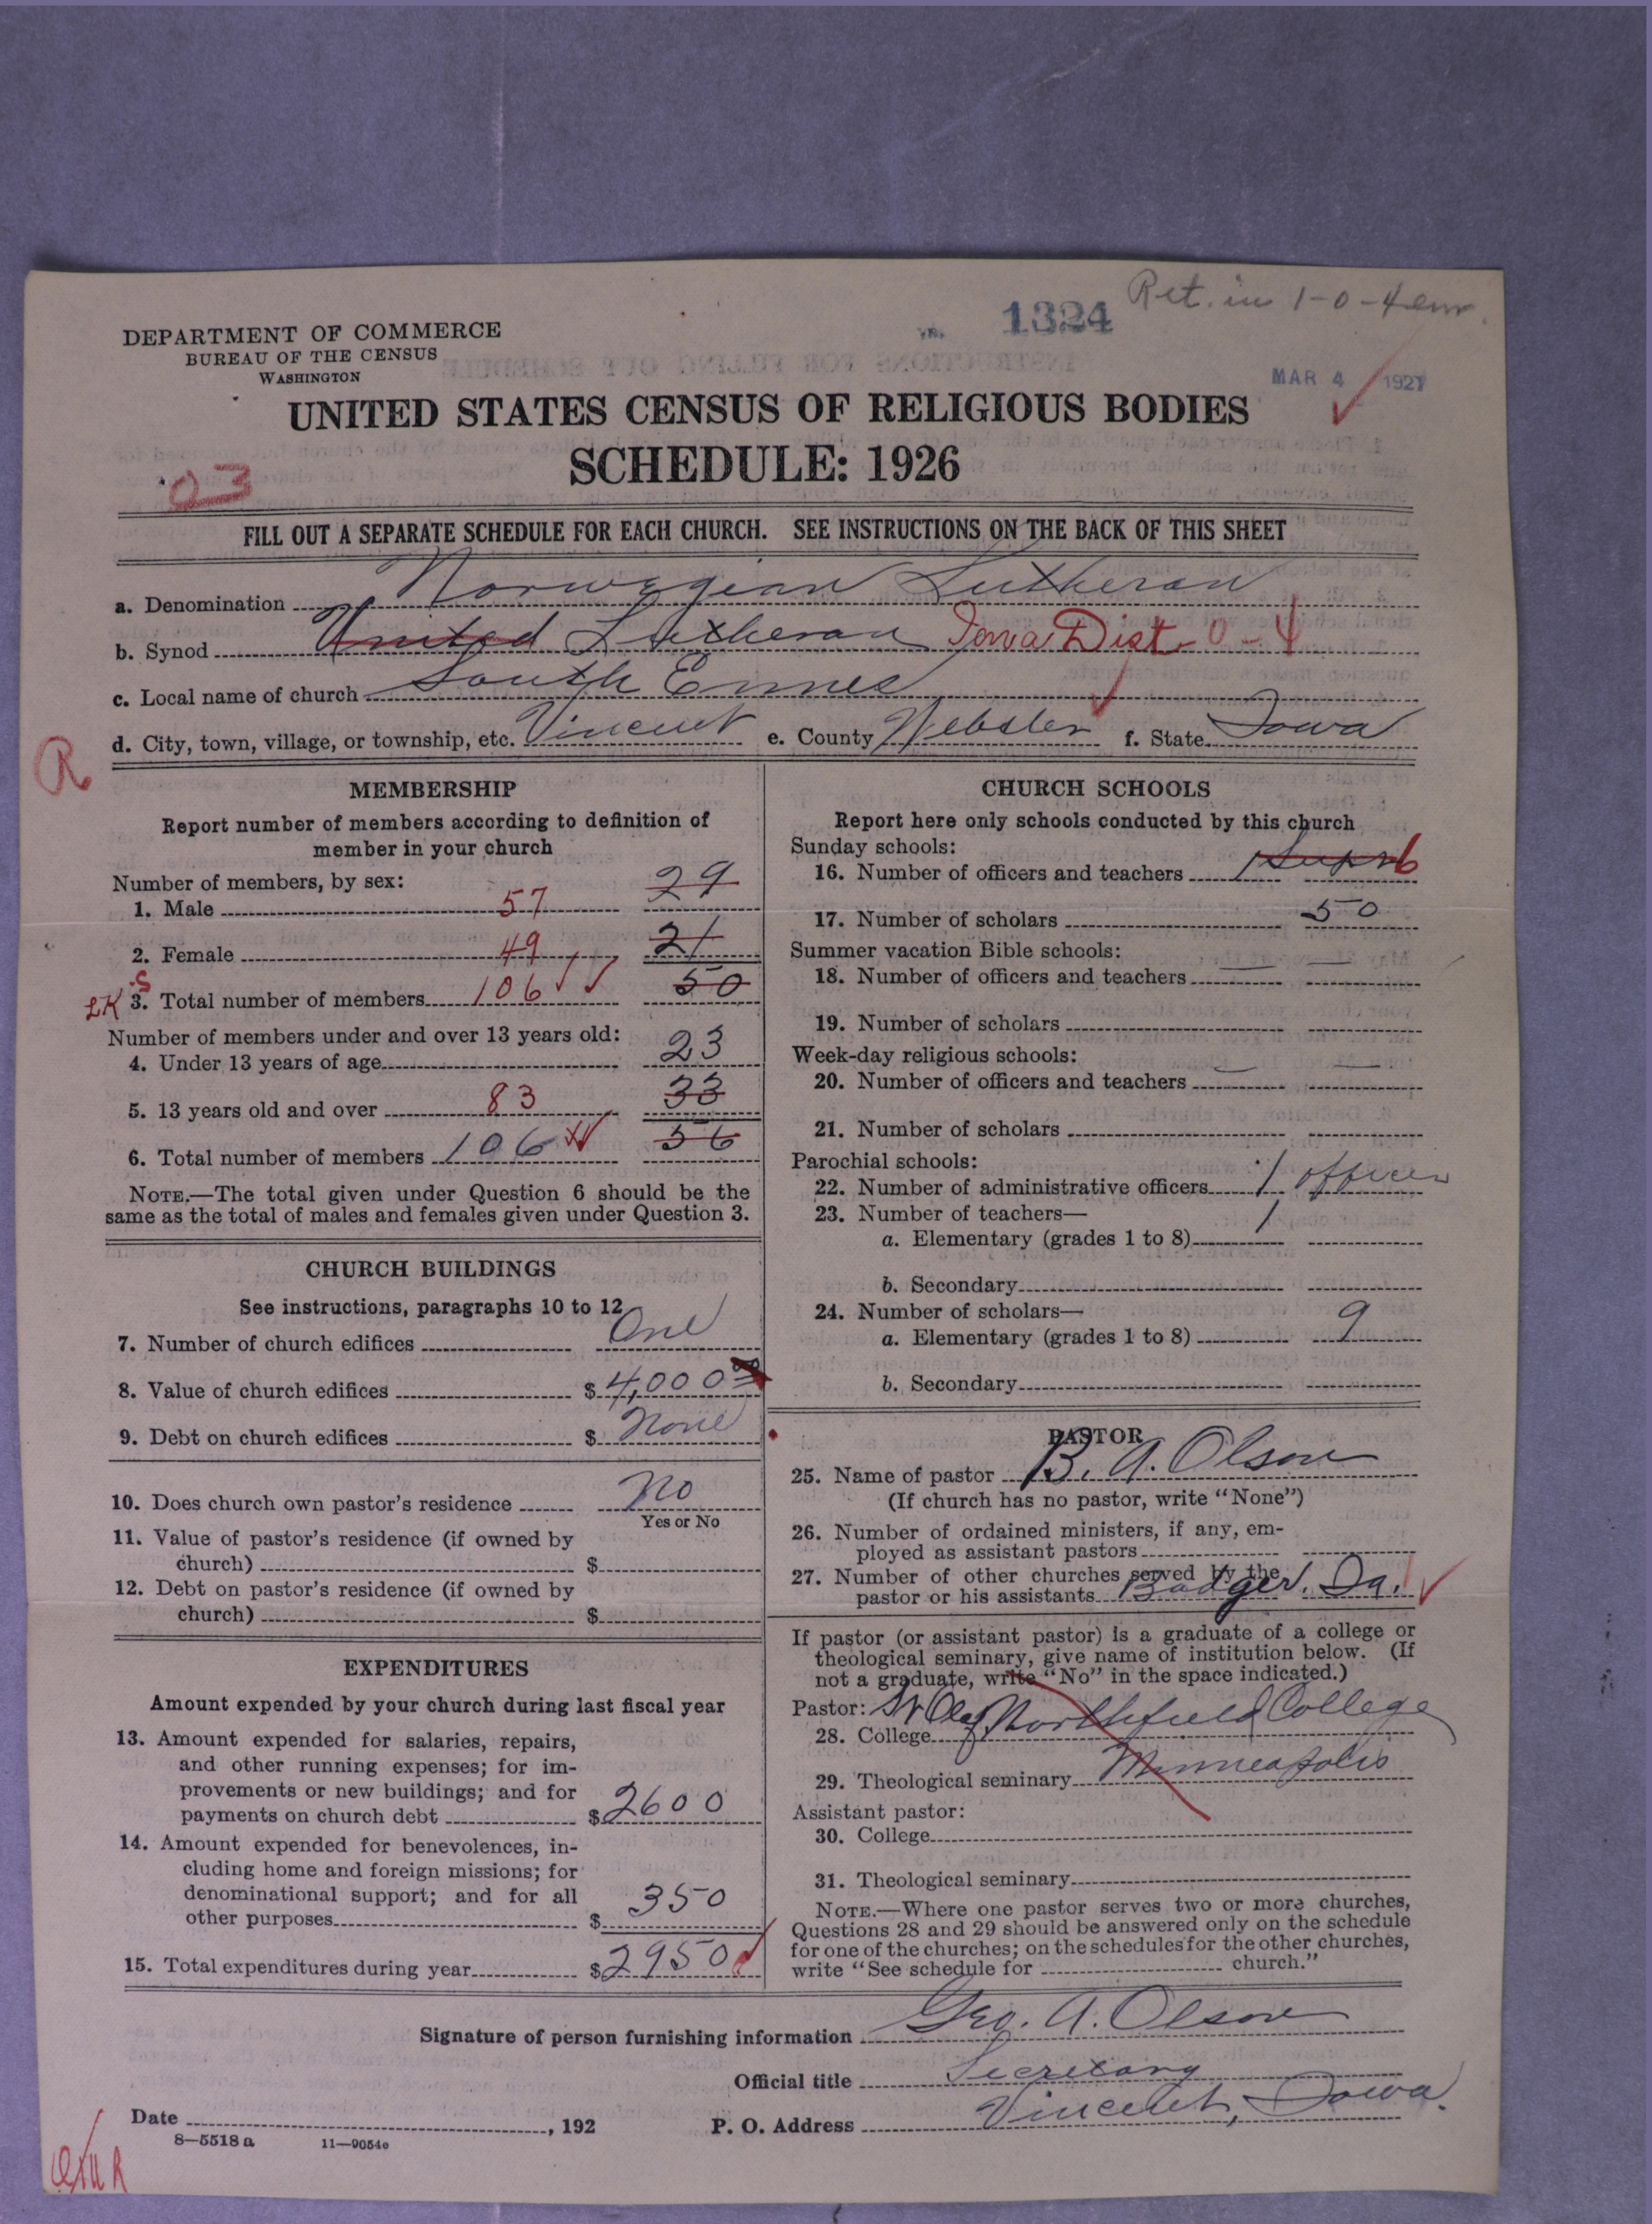 Ret. in 1-0-4
1324
DEPARTMENT OF COMMERCE
BUREAU OF THE CENSUS
WASHINGTON
MAR 4 1927
UNITED STATES CENSUS OF RELIGIOUS BODIES
SCHEDULE: 1926
03
FILL OUT A SEPARATE SCHEDULE FOR EACH CHURCH. SEE INSTRUCTIONS ON THE BACK OF THIS SHEET
a. Denomination Norwegian Lutheran
b. Synod United Lutheran Iowa Dist 0-4
c. Local name of church South Emmes
d. City, town, village, or township, etc. Vincent e. County Webster f. State Iowa
R
MEMBERSHIP
Report number of members according to definition of
member in your church
Number of members, by sex:
1. Male 57 29
2. Female 49 21
LK S 3. Total number of members 106 50
Number of members under and over 13 years old:
4. Under 13 years of age 23
5. 13 years old and over 83 33
6. Total number of members 106 56
NOTE.—The total given under Question 6 should be the
same as the total of males and females given under Question 3.
CHURCH BUILDINGS
See instructions, paragraphs 10 to 12
7. Number of church edifices One
8. Value of church edifices $ 4,000 00
9. Debt on church edifices $ None
10. Does church own pastor's residence No
Yes or No
11. Value of pastor's residence (if owned by
church) $
12. Debt on pastor's residence (if owned by
church) $
EXPENDITURES
Amount expended by your church during last fiscal year
13. Amount expended for salaries, repairs,
and other running expenses; for im-
provements or new buildings; and for
payments on church debt $ 2600
14. Amount expended for benevolences, in-
cluding home and foreign missions; for
denominational support; and for all
other purposes $ 350
15. Total expenditures during year $ 2950
CHURCH SCHOOLS
Report here only schools conducted by this church
Sunday schools:
16. Number of officers and teachers 1 Supt 6
17. Number of scholars 50
Summer vacation Bible schools:
18. Number of officers and teachers
19. Number of scholars
Week-day religious schools:
20. Number of officers and teachers
21. Number of scholars
Parochial schools:
22. Number of administrative officers 1 officer
23. Number of teachers—
a. Elementary (grades 1 to 8) 1
b. Secondary
24. Number of scholars—
a. Elementary (grades 1 to 8) 9
b. Secondary
PASTOR
25. Name of pastor B. A. Olson
(If church has no pastor, write "None")
26. Number of ordained ministers, if any, em-
ployed as assistant pastors
27. Number of other churches served by the
pastor or his assistants Badger, Ia. 1
If pastor (or assistant pastor) is a graduate of a college or
theological seminary, give name of institution below. (If
not a graduate, write "No" in the space indicated.)
Pastor:
28. College St Olaf Northfield College
29. Theological seminary Minneapolis
Assistant pastor:
30. College
31. Theological seminary
NOTE.—Where one pastor serves two or more churches,
Questions 28 and 29 should be answered only on the schedule
for one of the churches; on the schedules for the other churches,
write "See schedule for church."
Signature of person furnishing information Geo. A. Olson
Official title Secretary
Date , 192 P. O. Address Vincent, Iowa.
8—5518 a 11—9054c